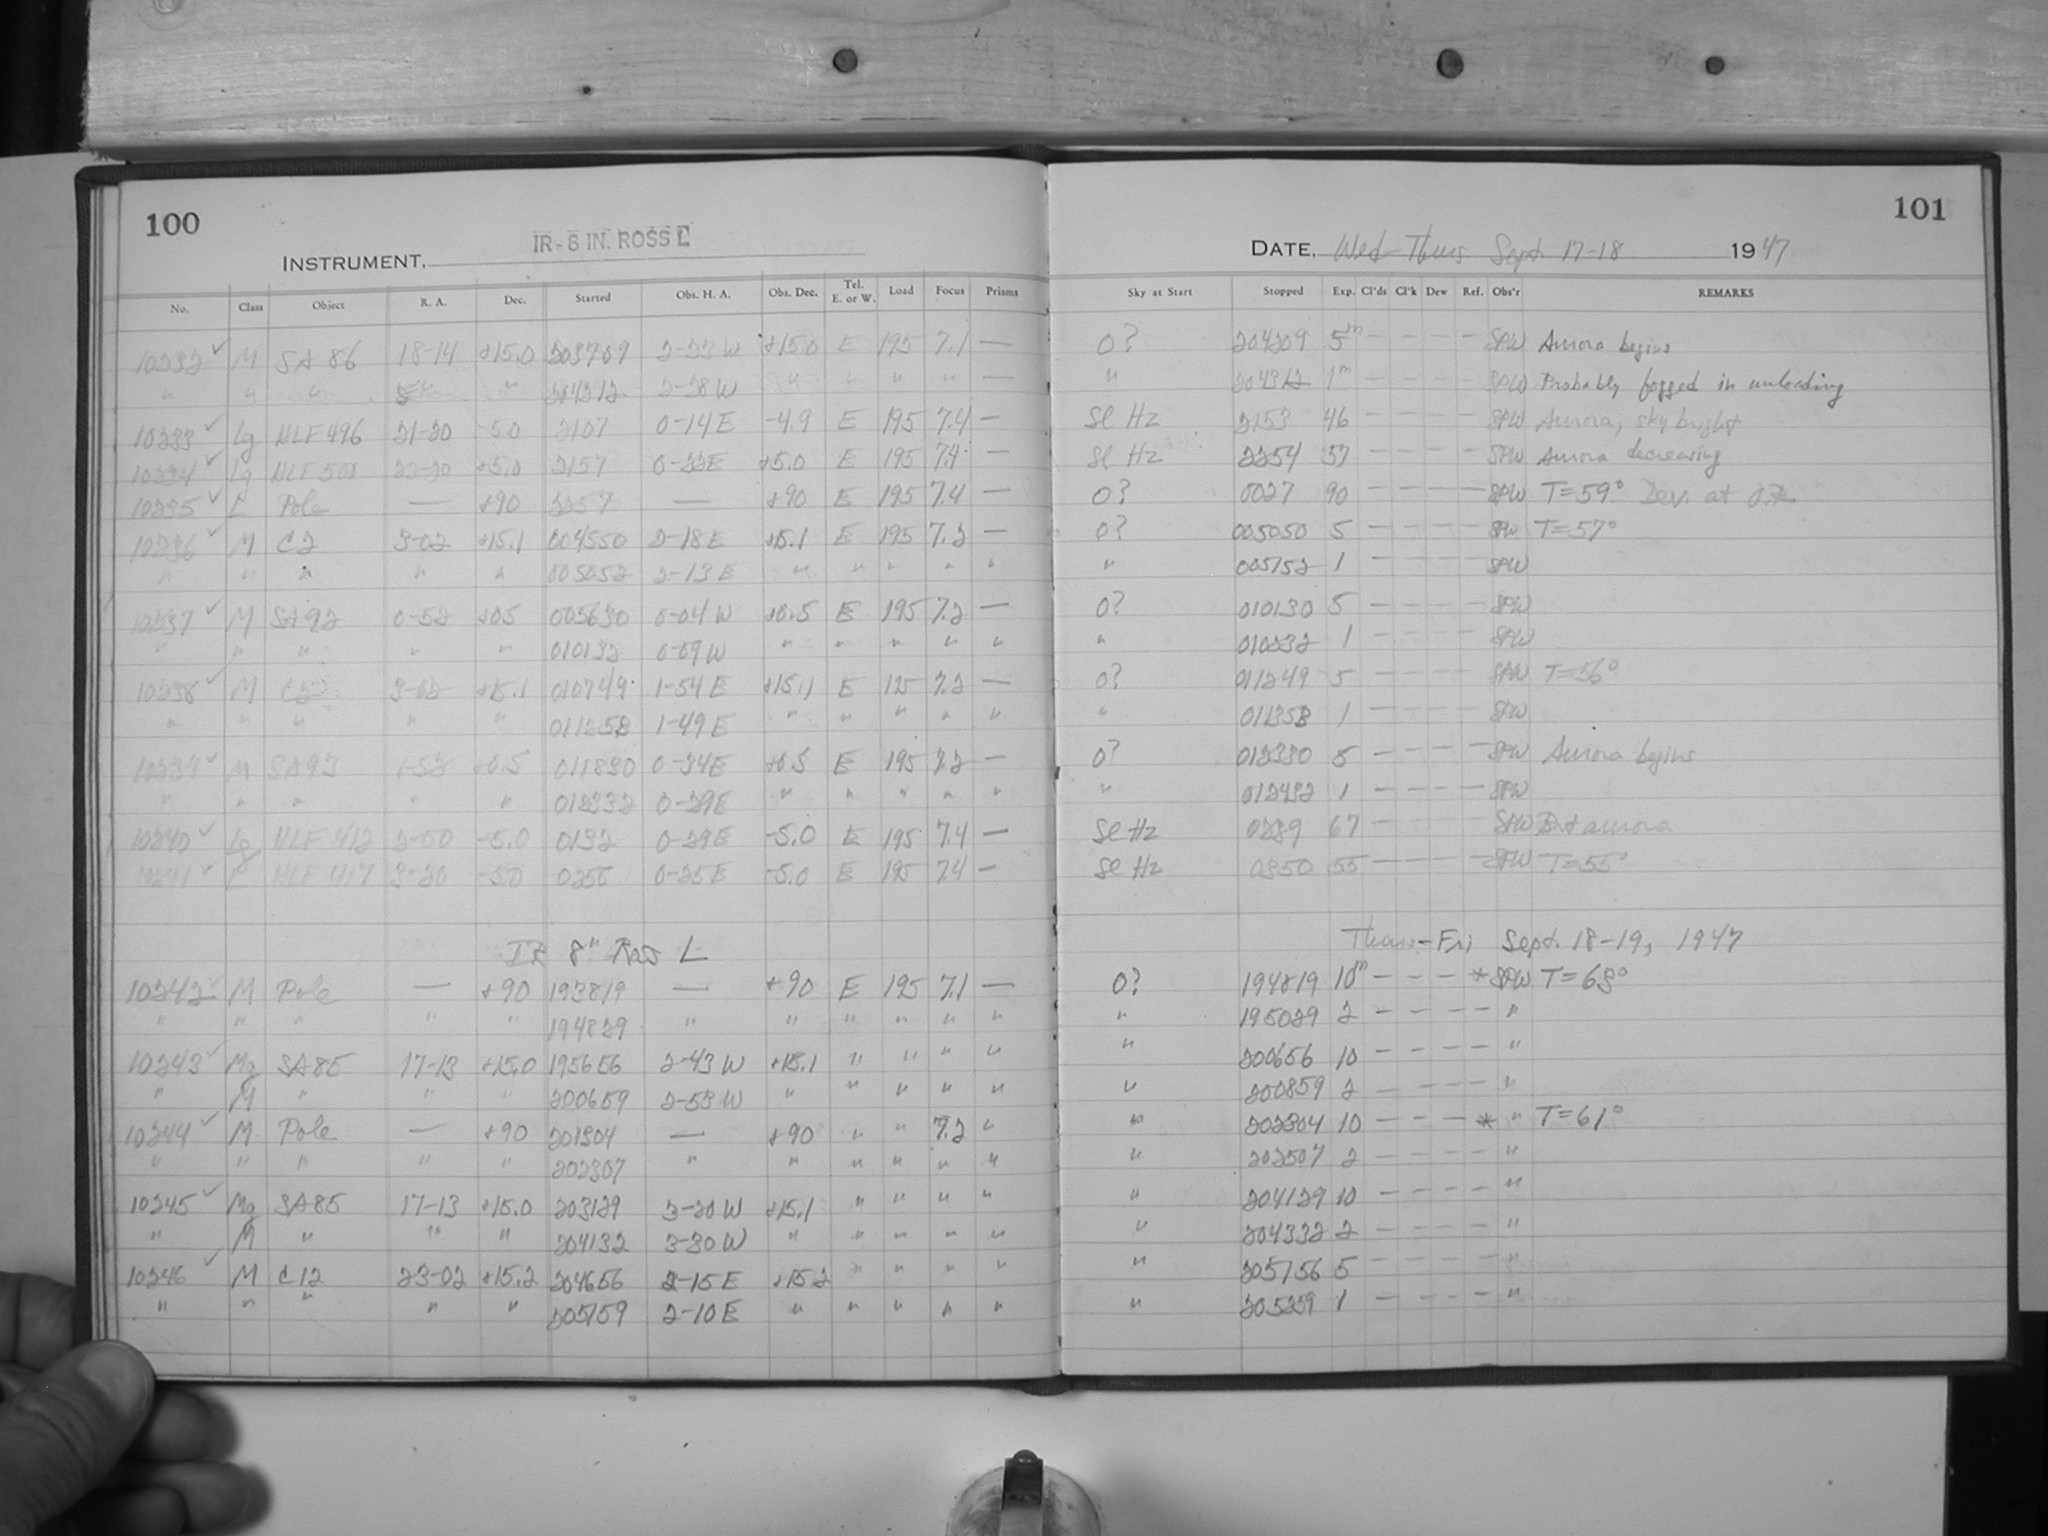 100
INSTRUMENT, IR-8 IN. ROSS L
No. Class Object R. A. Dec. Started Obs. H. A. Obs. Dec. Tel. E. or W. Load Focus Prisms
10232 ✓ M SA 86 18-14 +15.0 203709 2-23 W +15.0 E 195 7.1 —
" " " " " 204212 2-28 W " " " " —
10233 ✓ Lg HLF 496 21-20 -5.0 2107 0-14 E -4.9 E 195 7.4 —
10234 ✓ Lg HLF 501 22-20 +5.0 2157 0-22 E +5.0 E 195 7.4 —
10235 ✓ L Pole — +90 2257 — +90 E 195 7.4 —
10236 ✓ M C2 3-02 +15.1 004550 2-18 E +15.1 E 195 7.2 —
" " " " " 005052 2-13 E " " " " "
10237 ✓ M SA92 0-52 +0.5 005630 0-04 W +0.5 E 195 7.2 —
" " " " " 010132 0-09 W " " " " "
10238 ✓ M C2 3-02 +15.1 010749 1-54 E +15.1 E 195 7.2 —
" " " " " 011258 1-49 E " " " " "
10239 ✓ M SA93 1-52 +0.5 011830 0-34 E +0.5 E 195 7.2 —
" " " " " 012332 0-29 E " " " " "
10240 ✓ Lg HLF 412 2-50 -5.0 0132 0-29 E -5.0 E 195 7.4 —
10241 ✓ L HLF 417 3-20 -5.0 0255 0-25 E -5.0 E 195 7.4 —
IR 8" Ross L
10242 ✓ M Pole — +90 193819 — +90 E 195 7.1 —
" " " " " 194829 " " " " " "
10243 ✓ Mg SA85 17-13 +15.0 195656 2-43 W +15.1 " " " "
" M " " " 200659 2-53 W " " " " "
10244 ✓ M Pole — +90 201304 — +90 " " 7.2 "
" " " " " 202307 " " " " " "
10245 ✓ Mg SA85 17-13 +15.0 203129 3-20 W +15.1 " " " "
" M " " " 204132 3-30 W " " " " "
10246 ✓ M C12 23-02 +15.2 204656 2-15 E +15.2 " " " "
" " " " " 205159 2-10 E " " " " "
101
DATE, Wed-Thurs Sept. 17-18 1947
Sky at Start Stopped Exp. Cl'ds Cl'k Dew Ref. Obs'r REMARKS
0? 204209 5m — — — — SHW Aurora begins
" 204312 1m — — — — SHW Probably fogged in unloading
Sl Hz 2153 46 — — — — SHW Aurora, sky bright
Sl Hz 2254 57 — — — — SHW Aurora decreasing
0? 0027 90 — — — — SHW T=59° Dev. at
0? 005050 5 — — — — SHW T=57°
" 005152 1 — — — — SHW
0? 010130 5 — — — — SHW
" 010232 1 — — — — SHW
0? 011249 5 — — — — SHW T=56°
" 011358 1 — — — — SHW
0? 012330 5 — — — — SHW Aurora begins
" 012432 1 — — — — SHW
Sl Hz 0239 67 — — — — SHW Brt aurora
Sl Hz 0350 55 — — — — SHW T=55°
Thurs-Fri Sept. 18-19, 1947
0? 194819 10m — — — — * SHW T=63°
" 195029 2 — — — — "
" 200656 10 — — — — "
" 200859 2 — — — — "
" 202304 10 — — — — * " T=61°
" 202507 2 — — — — "
" 204129 10 — — — — "
" 204332 2 — — — — "
" 205156 5 — — — — "
" 205259 1 — — — — "